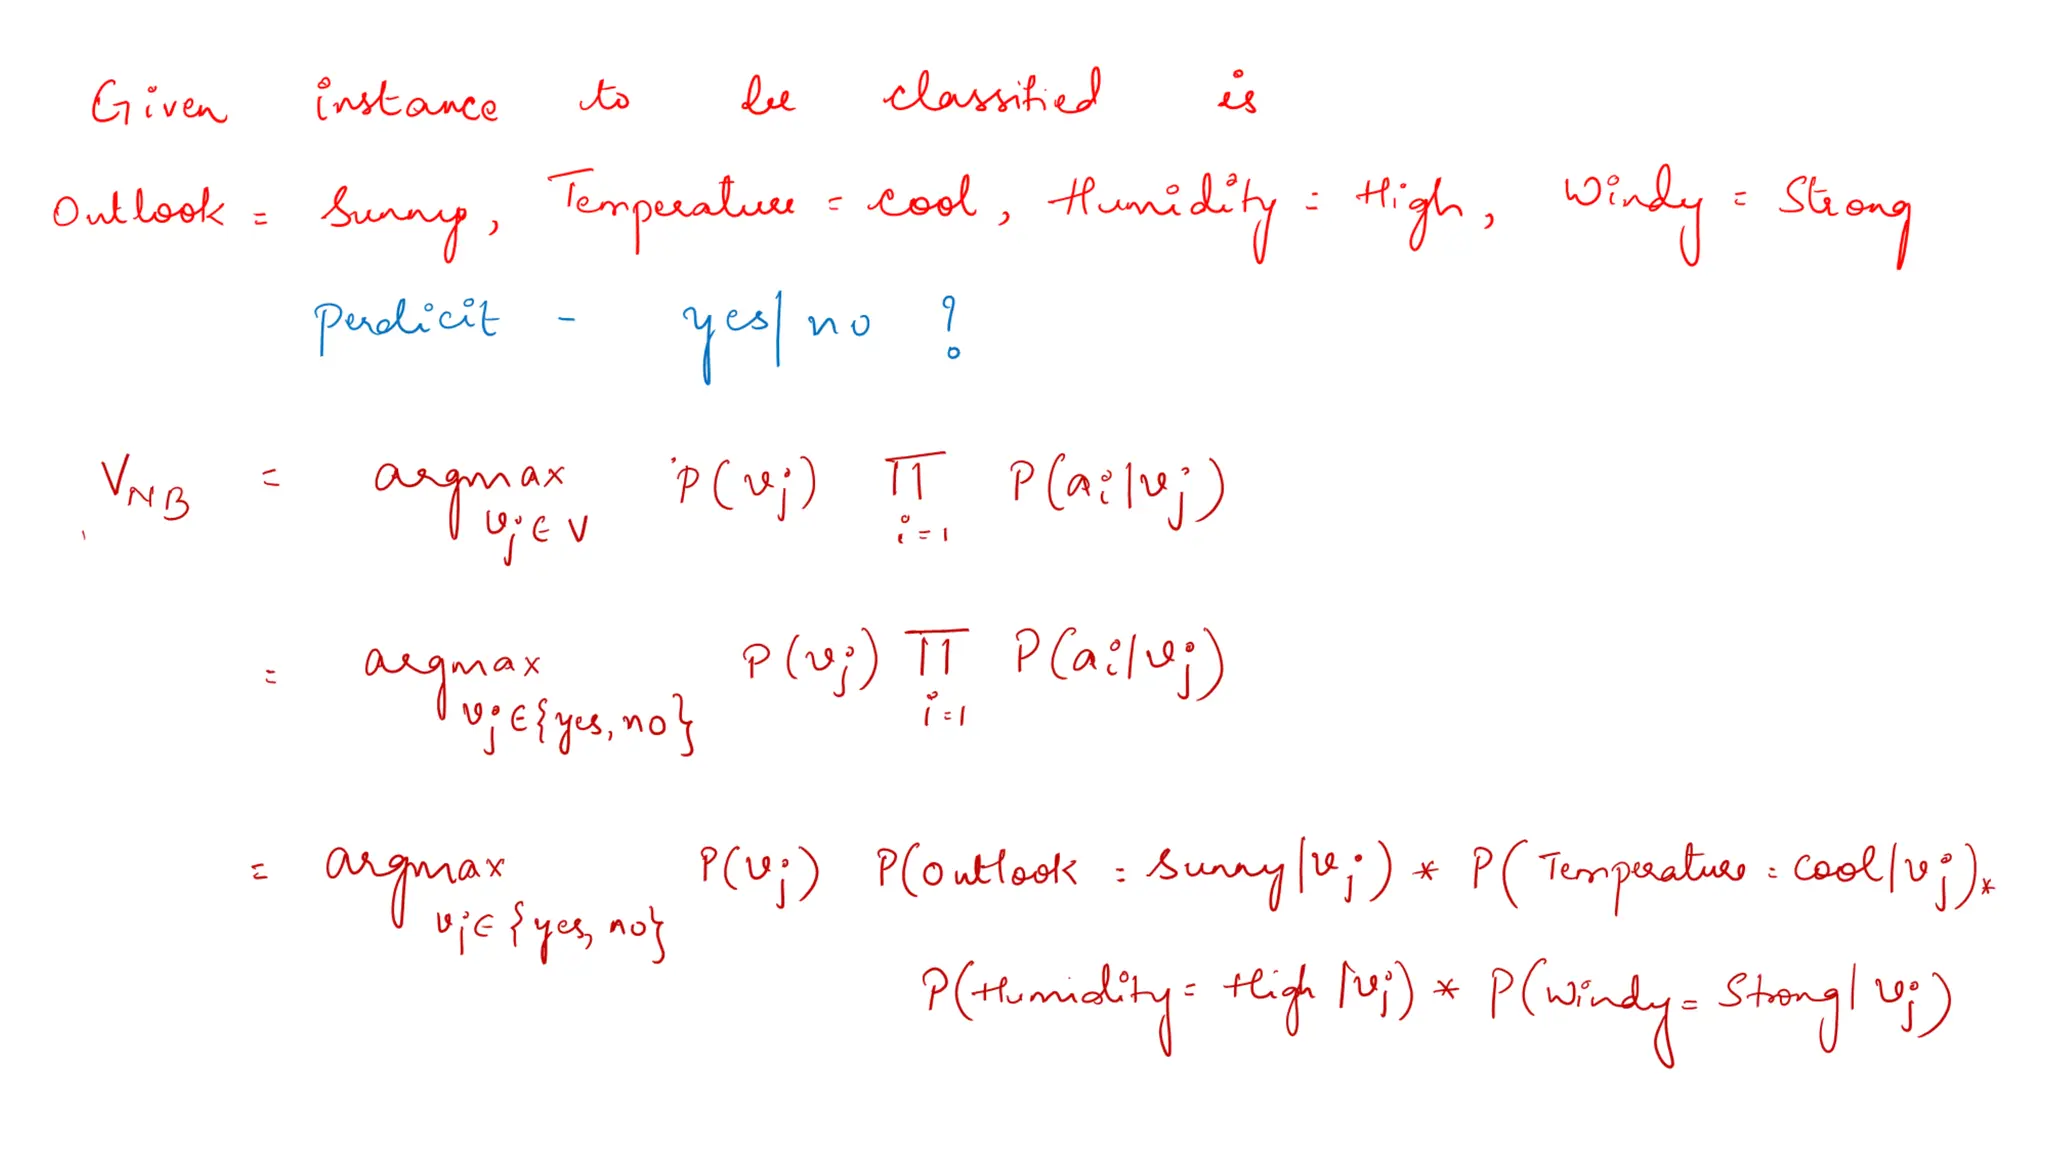 Given instance to be classified is
Outlook = Sunny, Temperature = cool, Humidity = High, Windy = Strong
Perdicit - yes/no ?
V_NB = argmax_{vj ∈ V} P(vj) Π_{i=1} P(ai|vj)
= argmax_{vj ∈ {yes, no}} P(vj) Π_{i=1} P(ai/vj)
= argmax_{vj ∈ {yes, no}} P(vj) P(Outlook = Sunny|vj) * P(Temperature = cool|vj) *
P(Humidity = High|vj) * P(Windy = Strong|vj)